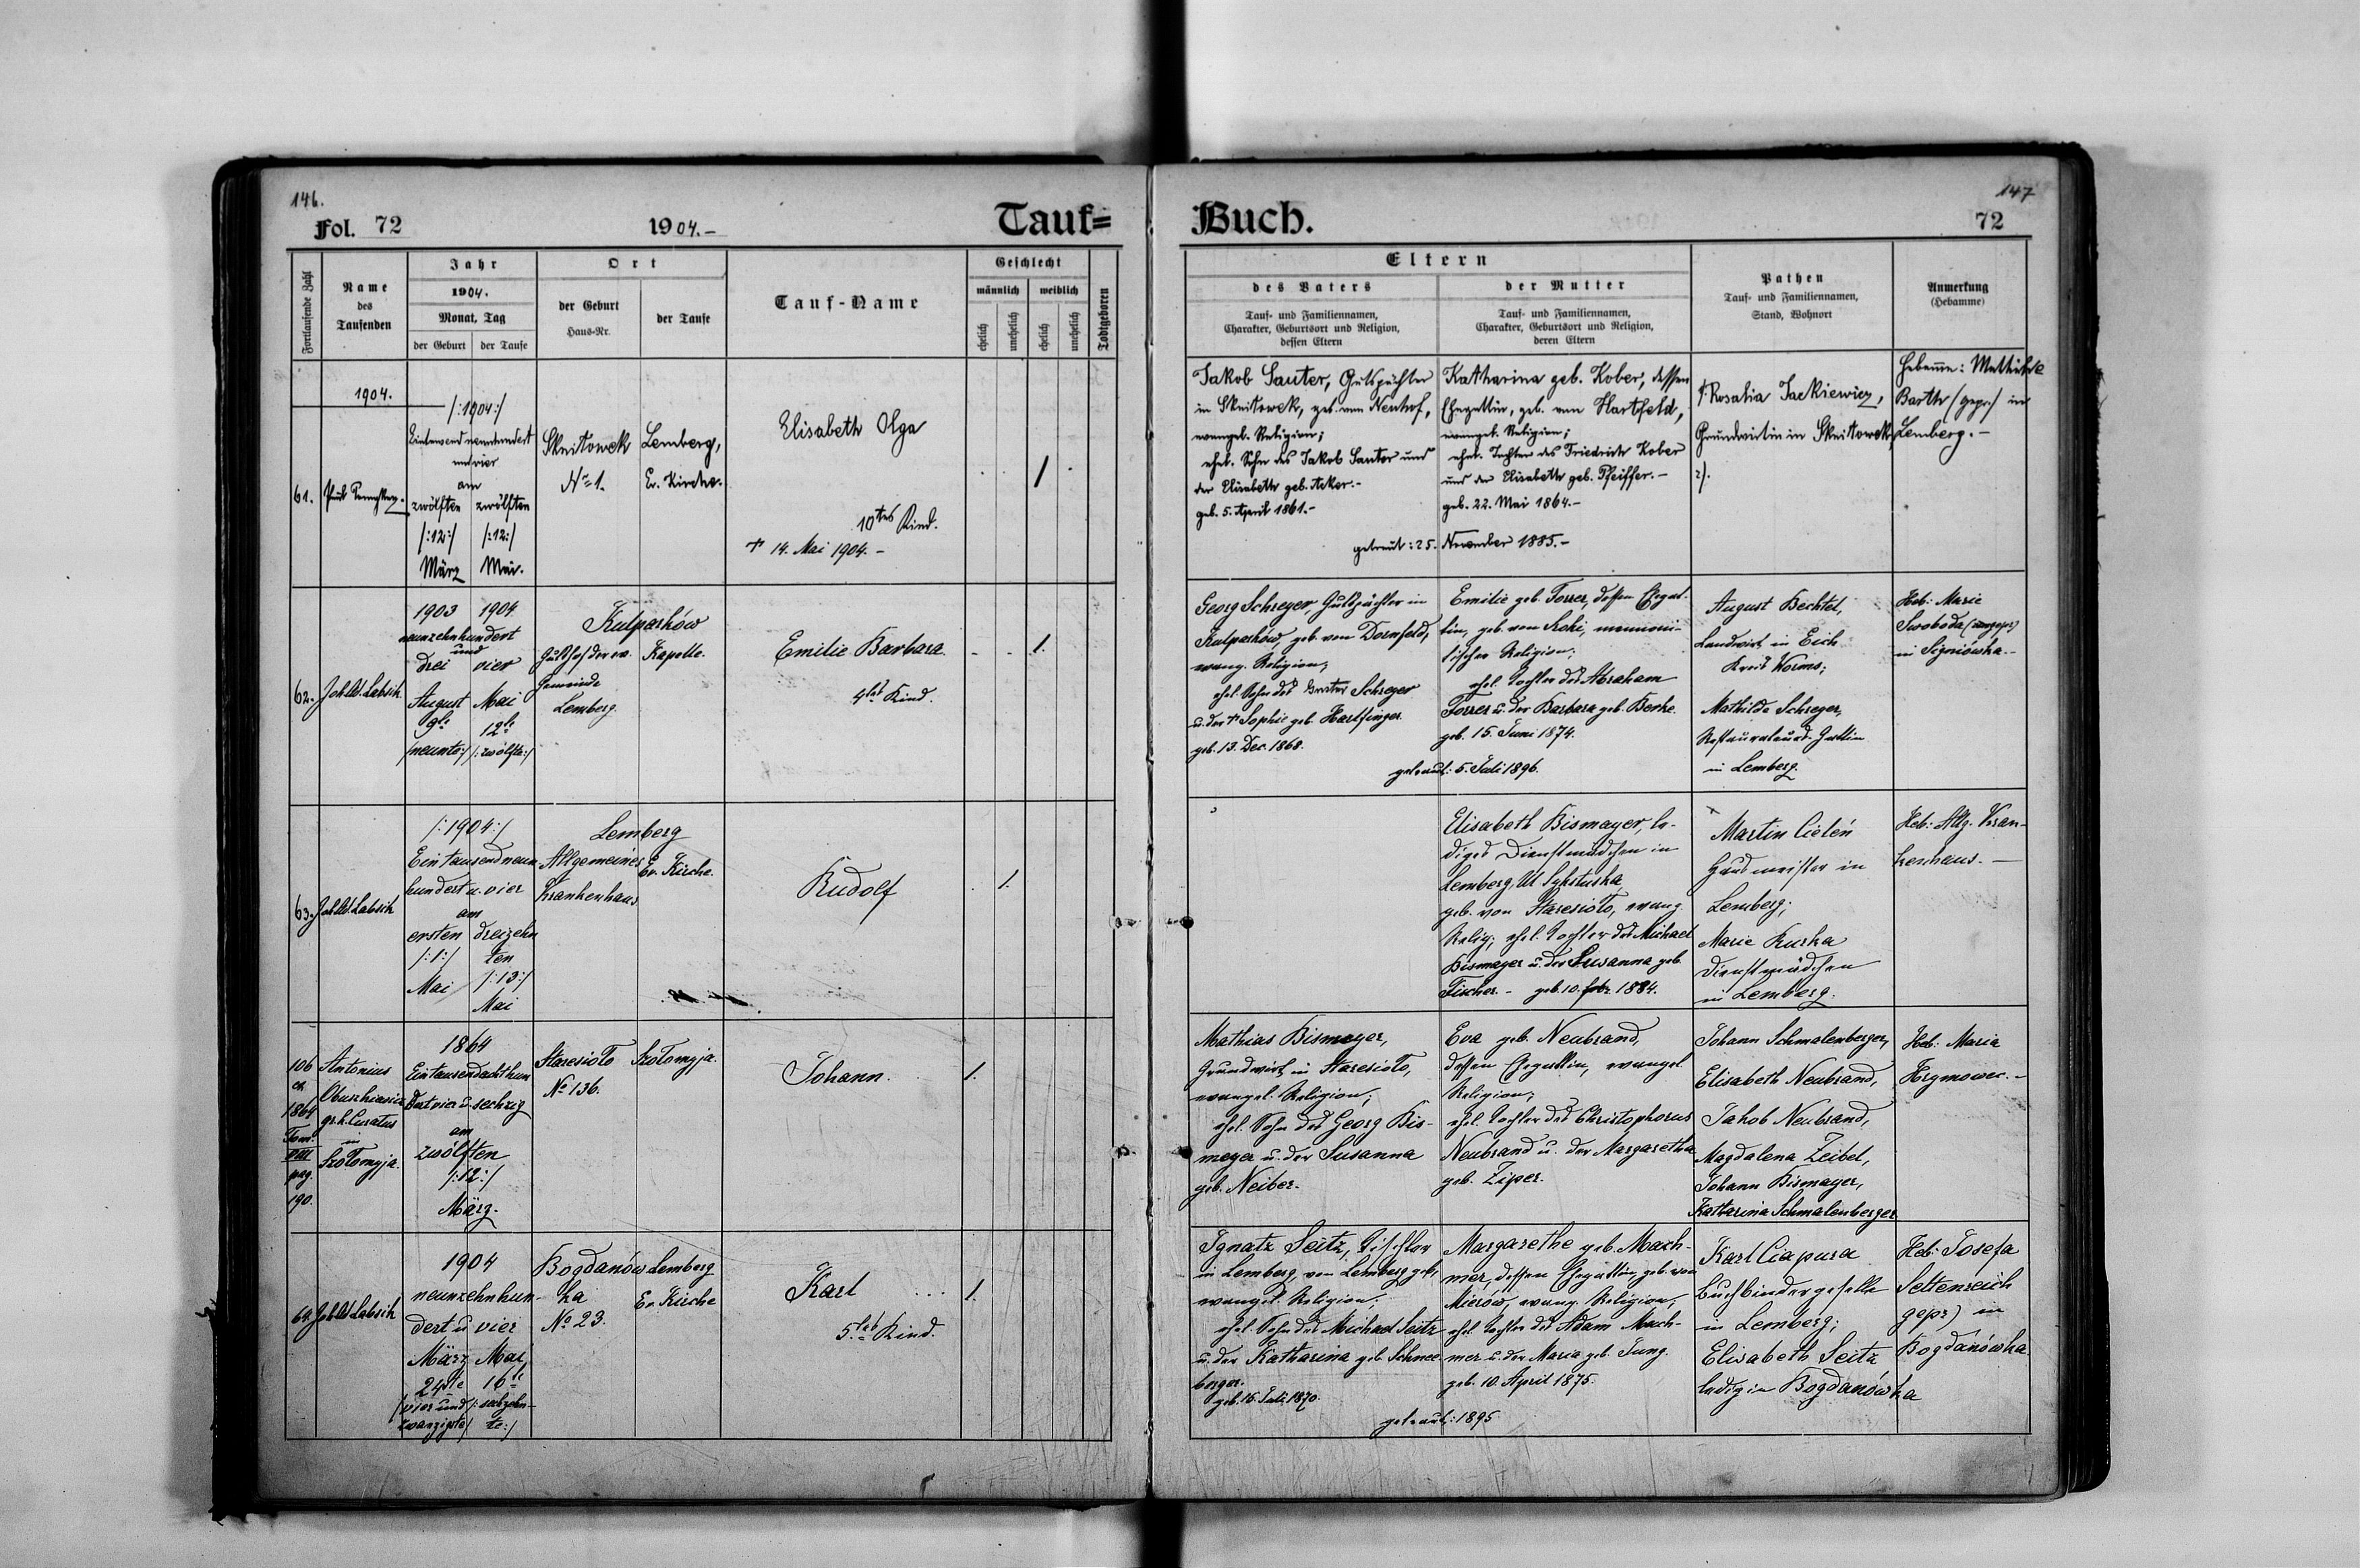 146.
Fol. 72
1904.-
Tauf=
Fortlaufende Zahl
Name
des
Taufenden
Jahr
1904.
Monat, Tag
der Geburt
der Taufe
Ort
der Geburt
Haus-Nr.
der Taufe
Tauf-Name
Geschlecht
männlich
weiblich
ehelich
unehelich
ehelich
unehelich
Todtgeboren
1904.
61.
/:1904:/
Eintausendneunhundert
und vier
am
zwölften zwölften
/:12:/ /:12:/
März Mai.
Skniłowek
No 1.
Lemberg,
Ev. Kirche.
Elisabeth Olga
10tes Kind.
† 14. Mai 1904.-
1
62.
Joh Ad. Labsik
1903 1904
neunzehnhundert
und
drei vier
August Mai
9te 12te
/neunte:/ /:zwölfte:/
Kulparków
Gutshof der ev.
Gemeinde
Lemberg
Kapelle.
Emilie Barbara.
4tes Kind.
1.
63.
Joh Ad. Labsik
/:1904:/
Eintausendneun
hundert u. vier
am
ersten dreizehn
/:1:/ ten
Mai /:13:/
Mai
Lemberg
Allgemeines
Krankenhaus.
Ev. Kirche.
Rudolf
1.
106
ex
1864
Tom.
VIII
pag.
190.
Antonius
gr. k. Curatus
in
Szołomyja.
1864
Eintausendachthun
dert vier u. sechzig
am
zwölften
/:12:/
März.
Staresioło
No 136.
Szołomyja.
Johann.
1.
64.
Joh Ad. Labsik
1904
neunzehnhun-
dert u. vier
März Mai
24ste 16te
/vier und /:sechzehn-
zwanzigste/ te:/
Bogdanów
ka
No 23.
Lemberg
Ev. Kirche
Karl
5.tes Kind.
1.
147
Buch.
72
Eltern
des Vaters
Tauf- und Familiennamen,
Charakter, Geburtsort und Religion,
dessen Eltern
der Mutter
Tauf- und Familiennamen,
Charakter, Geburtsort und Religion,
deren Eltern
Pathen
Tauf- und Familiennamen,
Stand, Wohnort
Anmerkung
(Hebamme)
Jakob Sauter, Gutspächter
in Skniłowek, geb. von Neuhof,
evangel. Religion;
ehel. Sohn des Jakob Sauter und
der Elisabeth geb. Acker.-
geb. 5. April 1861.-
Katharina geb. Kober, dessen
Ehegattin, geb. von Hartfeld,
evangel. Religion;
ehel. Tochter des Friedrich Kober
und der Elisabeth geb. Pfeiffer.-
geb. 22. Mai 1864.-
getraut: 25. November 1885.-
Rosalia Jackiewicz,
Grundwirtin in Skniłowek,
2).
Hebamme: Mathilde
Barth /gepr./ in
Lemberg.-
Georg Schreyer, Gutspächter in
Kulparków geb. von Dornfeld,
evang. Religion;
ehel. Sohn des Gustav Schreyer
u. der † Sophie geb. Hartfinger.
geb. 13. Dec. 1868.
Emilie geb. Forrer, dessen Ehegat-
tin, geb. von Rohi, mennoni-
tischer Religion;
ehel. Tochter des Abraham
Forrer u. der Barbara geb. Berke.
geb. 15. Juni 1874.
getraut: 5. Juli 1896.
August Bechtel,
Landwirt in Eich
Kreis Worms;
Mathilde Schreyer,
Restaurateurs-Gattin
in Lemberg.
Heb: Marie
Swoboda (ungepr)
in Sygniówka.-
Elisabeth Bismayer, le-
diges Dienstmädchen in
Lemberg, Ul. Sykstuska,
geb. von Staresioło, evang.
Relig; ehel. Tochter des Michael
Bismayer u. der Susanna geb.
Fischer.- geb. 10. Febr. 1884.
Martin Cieleń
Hausmeister in
Lemberg;
Marie Kuska
Dienstmädchen
in Lemberg.
Heb: Allg. Kran-
kenhaus.-
Mathias Bismayer,
Grundwirt in Staresioło,
evangel. Religion;
ehel. Sohn des Georg Bis-
meyer u. der Susanna
geb. Neiber.
Eva geb. Neubrand,
dessen Ehegattin, evangel
Religion;
ehel. Tochter des Christophorus
Neubrand u. der Margaretha
geb. Ziper.
Johann Schmalenberger,
Elisabeth Neubrand,
Jakob Neubrand,
Magdalena Zeibel,
Johann Bismayer,
Katharina Schmalenberger
Heb: Maria
Hrymowec.-
Ignatz Seitz, Tischler
in Lemberg, von Lemberg geb,
evangel. Religion;
ehel. Sohn des Michael Seitz
u. der Katharina geb. Schnee-
berger.
geb. 16. Juli 1870.
Margarethe geb. Mach-
mer, dessen Ehegattin, geb. von
Mierów, evang. Religion;
ehel. Tochter des Adam Mach-
mer u. der Maria geb. Jung.
geb. 10. April 1875.
getraut: 1895
Karl Ciapura
Buchbindergeselle
in Lemberg;
Elisabeth Seitz
ledig in Bogdanówka
Heb: Josefa
Seltenreich
gepr) in
Bogdanówka